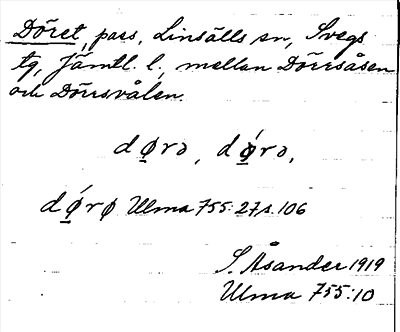 Döret, pass, Linsälls sn, Svegs
tg, Jämtl. l., mellan Dörrsåsen
och Dörrsvålen.
dørə, dǿrə,
dǿrø Ulma 755:27 s. 106
S. Åsander 1919
Ulma 755:10